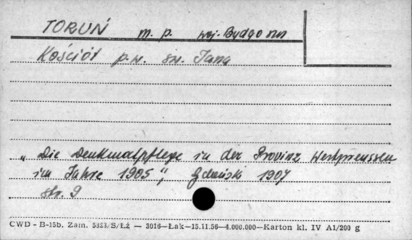 TORUŃ m. p. woj. Bydgoszcz
Kościół p.w. św. Jana
„Die Denkmalpflege in der Provinz Westpreussen
im Jahre 1905", Gdańsk 1907
str. 9
CWD - B-15b, Zam. 5323/S/Łż — 3016-Łak-15.11.56-4.000.000-Karton kl. IV A1/200 g